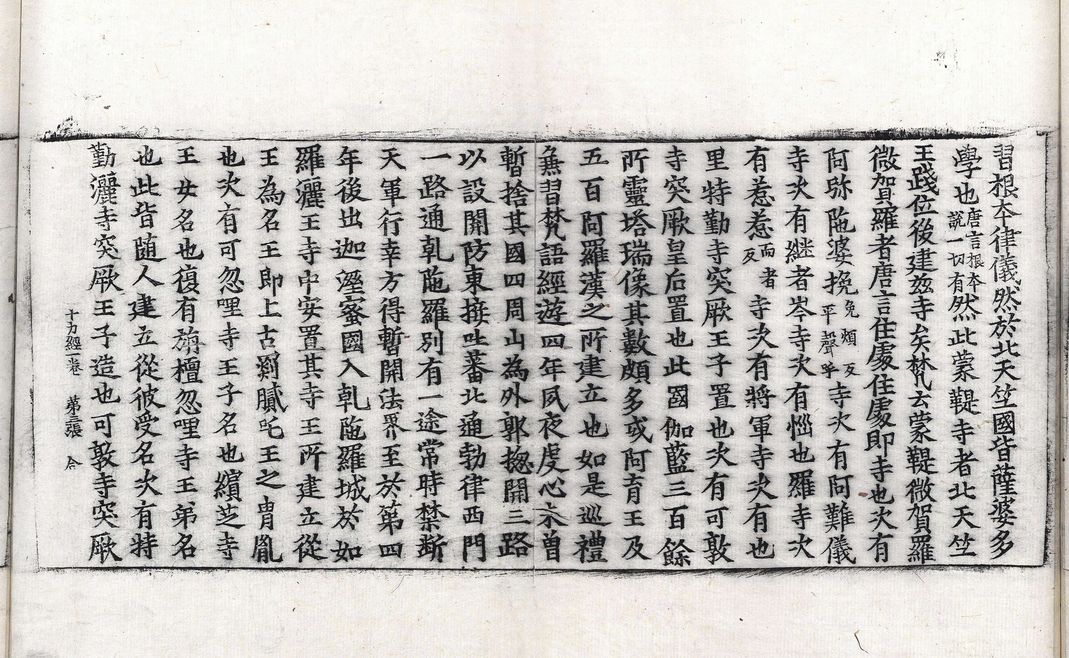 習根本律儀然於北天竺國皆薩婆多
學也唐言根本說一切有然此蒙鞮寺者北天竺
王踐位後建兹寺矣梵云蒙鞮微賀羅
微賀羅者唐言住處住處即寺也次有
阿弥陁婆挽免煩反平聲呼寺次有阿難儀
寺次有継者岑寺次有惱也羅寺次
有惹惹而者反寺次有將軍寺次有也
里特勤寺突厥王子置也次有可敦
寺突厥皇后置也此國伽藍三百餘
所靈塔瑞像其數頗多或阿育王及
五百阿羅漢之所建立也如是巡禮
兼習梵語經遊四年夙夜虔心未曽
暫捨其國四周山為外郭揔開三路
以設開防東接吐蕃北通勃律西門
一路通乹陁羅別有一途常時禁斷
天軍行幸方得暫開法界至於第四
年後出迦溼蜜國入乹陁羅城於如
羅灑王寺中安置其寺王所建立從
王為名王即上古罽膩吒王之胄胤
也次有可忽哩寺王子名也繽芝寺
王女名也復有旃檀忽哩寺王弟名
也此皆随人建立從彼受名次有特
勤灑寺突厥王子造也可敦寺突厥
十力經一卷 第三張 合